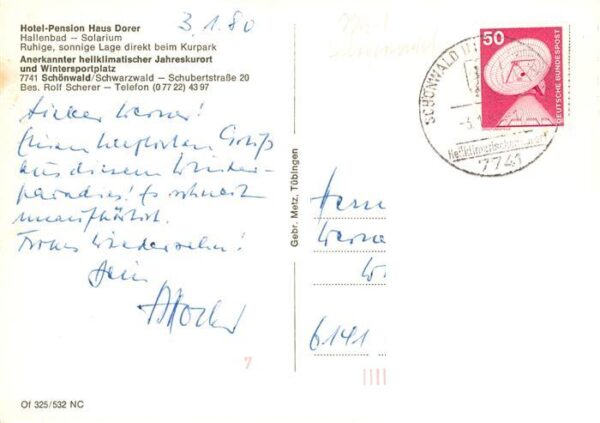 3.1.80
Hotel-Pension Haus Dorer
Hallenbad — Solarium
Ruhige, sonnige Lage direkt beim Kurpark
Anerkannter heilklimatischer Jahreskurort
und Wintersportplatz
7741 Schönwald/Schwarzwald — Schubertstraße 20
Bes. Rolf Scherer — Telefon (0 77 22) 43 97
Lieber Werner!
Einen herzlichen Gruß
aus diesem Winter-
paradies! Es schneit
unaufhörlich.
Frohes Wiedersehn!
Dein
Of 325/532 NC
Gebr. Metz, Tübingen
7
50
DEUTSCHE BUNDESPOST
SCHÖNWALD
7741
Herrn
Werne
6141